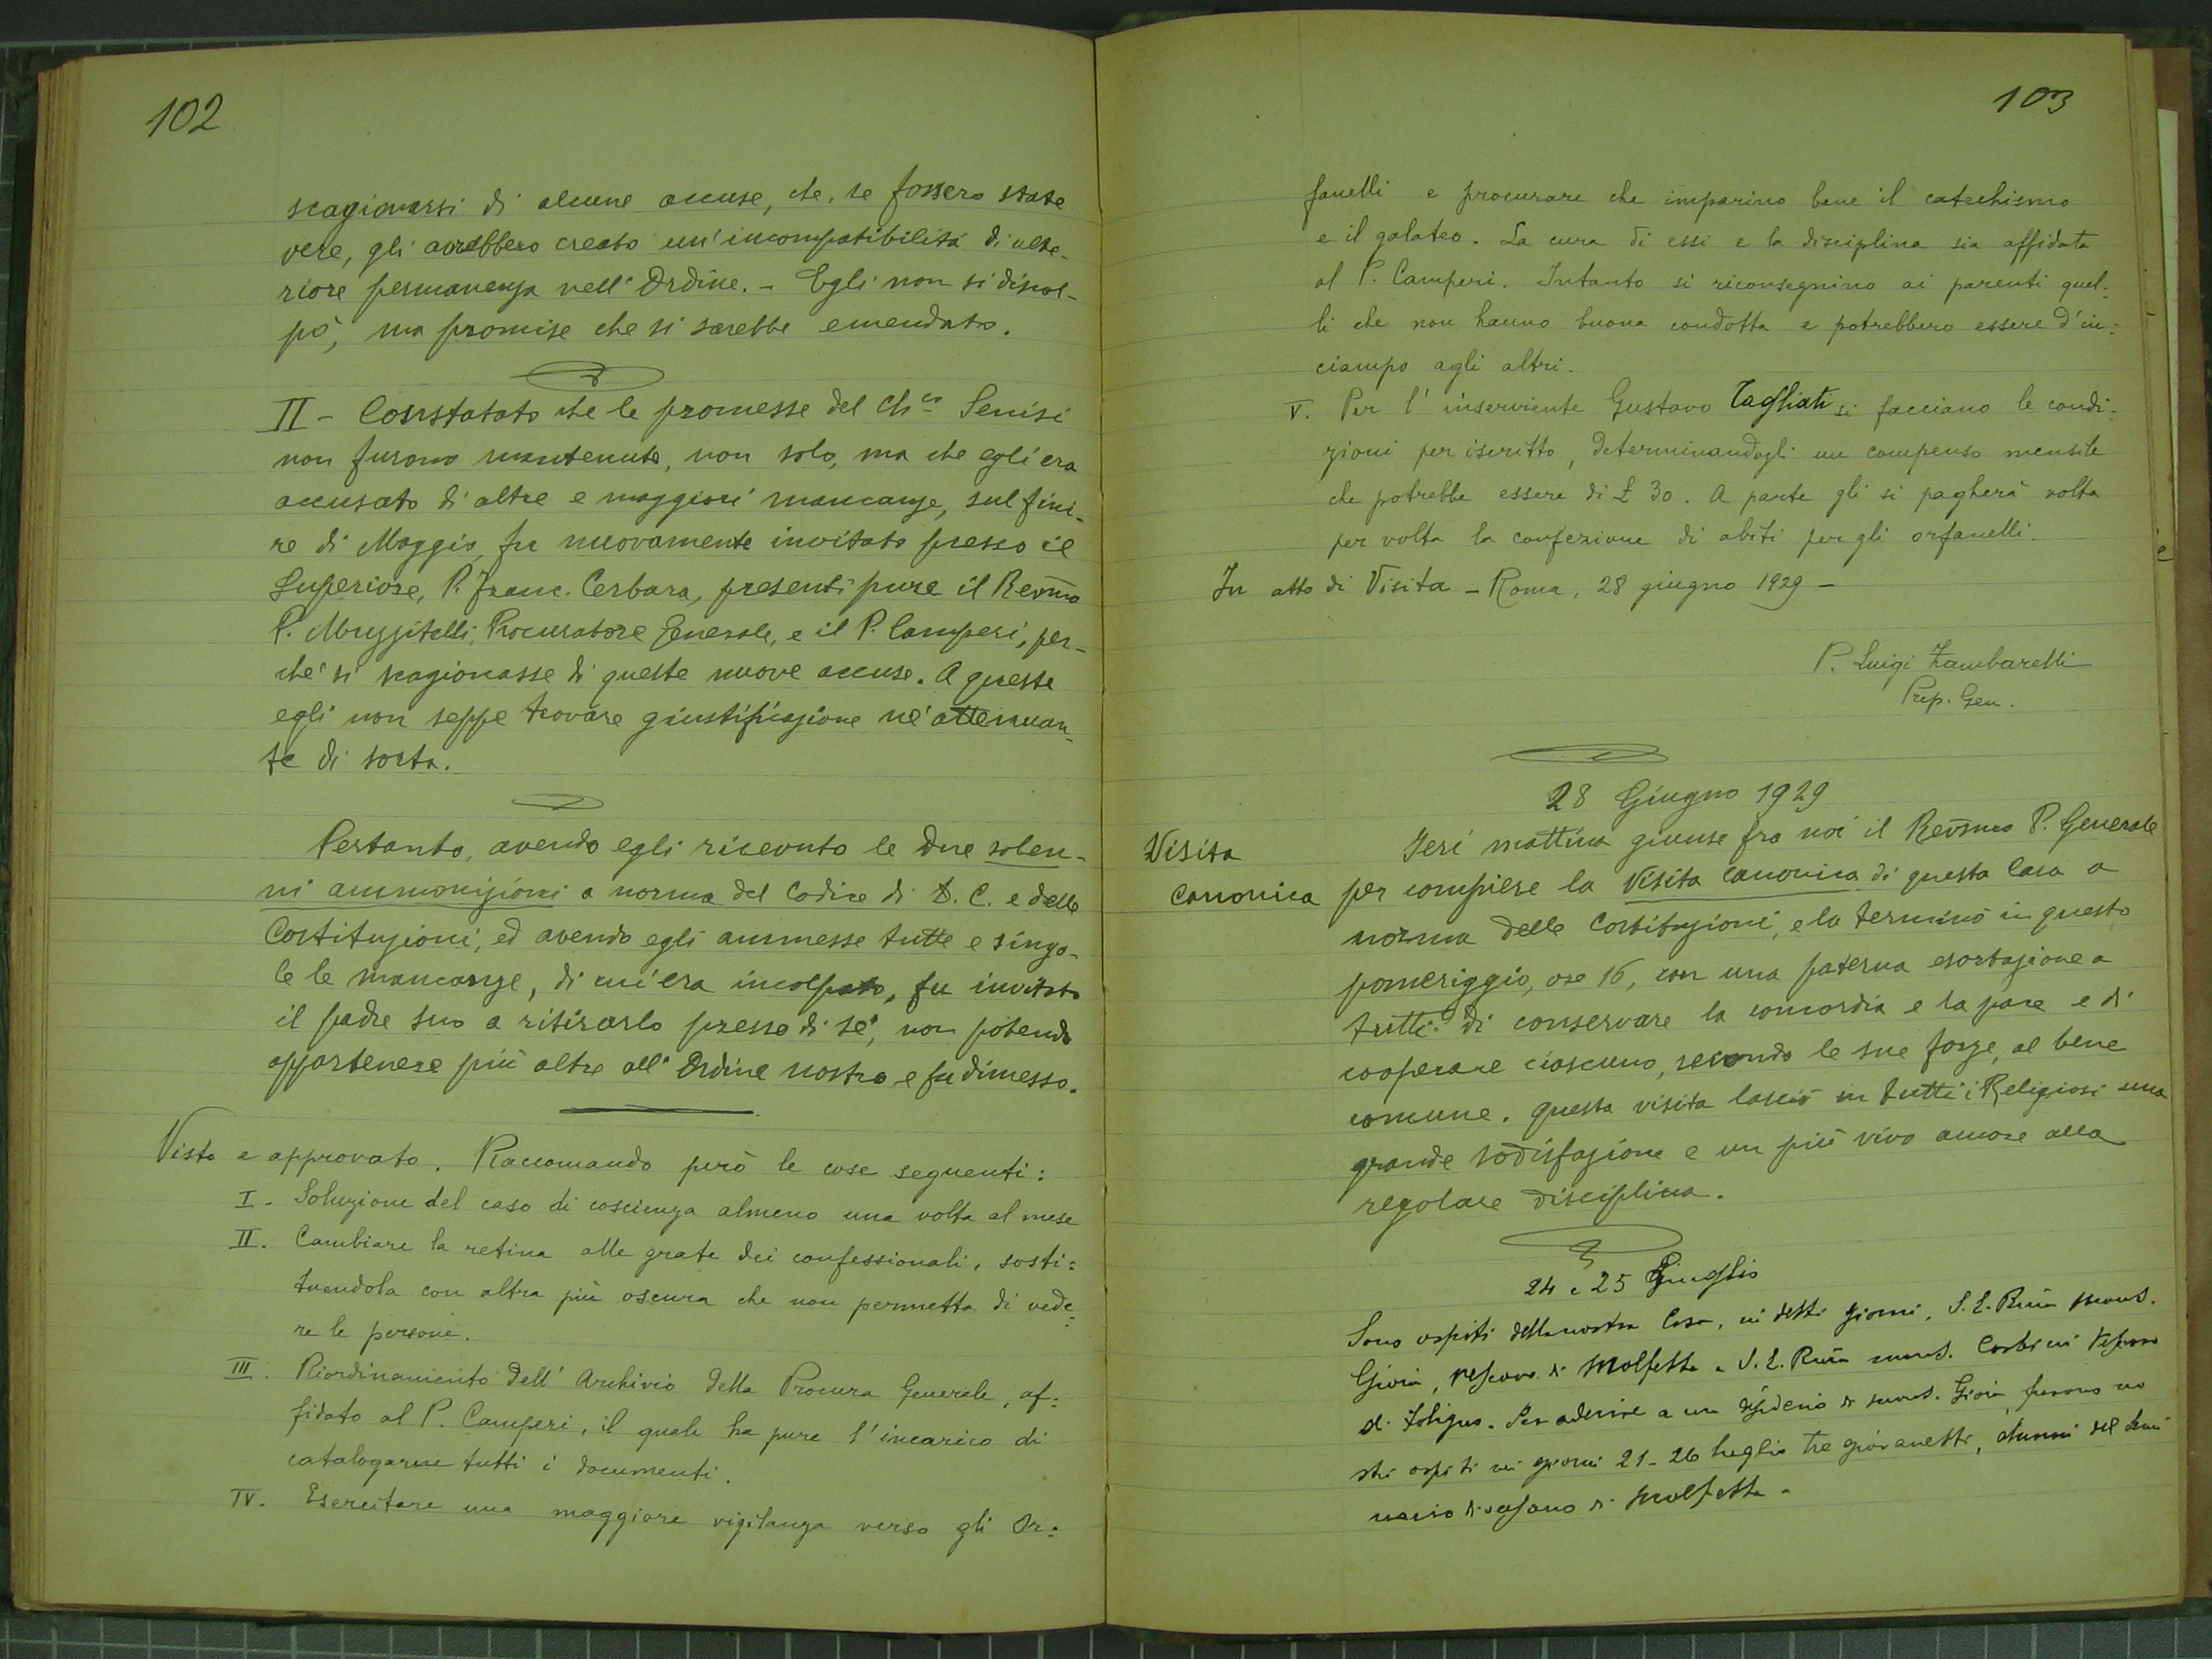 102
scagionarsi di alcune accuse, che, se fossero state
vere, gli avrebbero creato un'incompatibilità di ulte-
riore permanenza nell'Ordine. - Egli non si discol-
pò, ma promise che si sarebbe emendato.
II - Constatato che le promesse del Ch.co Senisi
non furono mantenute, non solo, ma che egli era
accusato di altre e maggiori mancanze, sul fini-
re di Maggio, fu nuovamente invitato presso il
Superiore, P. Franc. Cerbara, presenti pure il Rev̅mo
P. Muzzitelli, Procuratore Generale, e il P. Camperi, per-
chè si scagionasse di queste nuove accuse. A queste
egli non seppe trovare giustificazione nè attenuan-
te di sorta.
Pertanto, avendo egli ricevuto le due solen-
ni ammonizioni a norma del Codice di D. C. e delle
Costituzioni, ed avendo egli ammesse tutte e singo-
le le mancanze, di cui era incolpato, fu invitato
il padre suo a ritirarlo presso di sè, non potendo
appartenere più oltre all'Ordine nostro e fu dimesso.
Visto e approvato. Raccomando però le cose seguenti:
I - Soluzione del caso di coscienza almeno una volta al mese
II. Cambiare la retina alle grate dei confessionali, sosti:
tuendola con altra più oscura che non permetta di vede:
re le persone.
III. Riordinamento dell'Archivio della Procura Generale, af:
fidato al P. Camperi, il quale ha pure l'incarico di
catalogarne tutti i documenti.
IV. Esercitare una maggiore vigilanza verso gli Or:
103
fanelli e procurare che imparino bene il catechismo
e il galateo. La cura di essi e la disciplina sia affidata
al P. Camperi. Intanto si riconsegnino ai parenti quel:
li che non hanno buona condotta e potrebbero essere d'in:
ciampo agli altri.
V. Per l'inserviente Gustavo Tagliati si facciano le condi:
zioni per iscritto, determinandogli un compenso mensile
che potrebbe essere di £ 30. A parte gli si pagherà volta
per volta la confezione di abiti per gli orfanelli.
In atto di Visita - Roma, 28 giugno 1929 -
P. Luigi Zambarelli
Prep. Gen.
28 Giugno 1929
Visita
canonica
Ieri mattina giunse fra noi il Rev̅smo P. Generale
per compiere la Visita canonica di questa Casa a
norma delle Costituzioni, e la terminò in questo
pomeriggio, ore 16, con una paterna esortazione a
tutti di conservare la concordia e la pace e di
cooperare ciascuno, secondo le sue forze, al bene
comune. Questa visita lasciò in tutti i Religiosi una
grande sodisfazione e un più vivo amore alla
regolare disciplina.
24 e 25 Giuglio
Sono ospiti della nostra Casa, in detti giorni, S. E. Rm̅a Mons.
Gioia, Vescovo di Molfetta e S. E. Rm̅a mons. Corbini Vescovo
di Foligno. Per aderire a un desiderio di mons. Gioia, furono no
stri ospiti nei giorni 21-26 luglio tre giovanetti, alunni del Semi
nario di Molfetta.